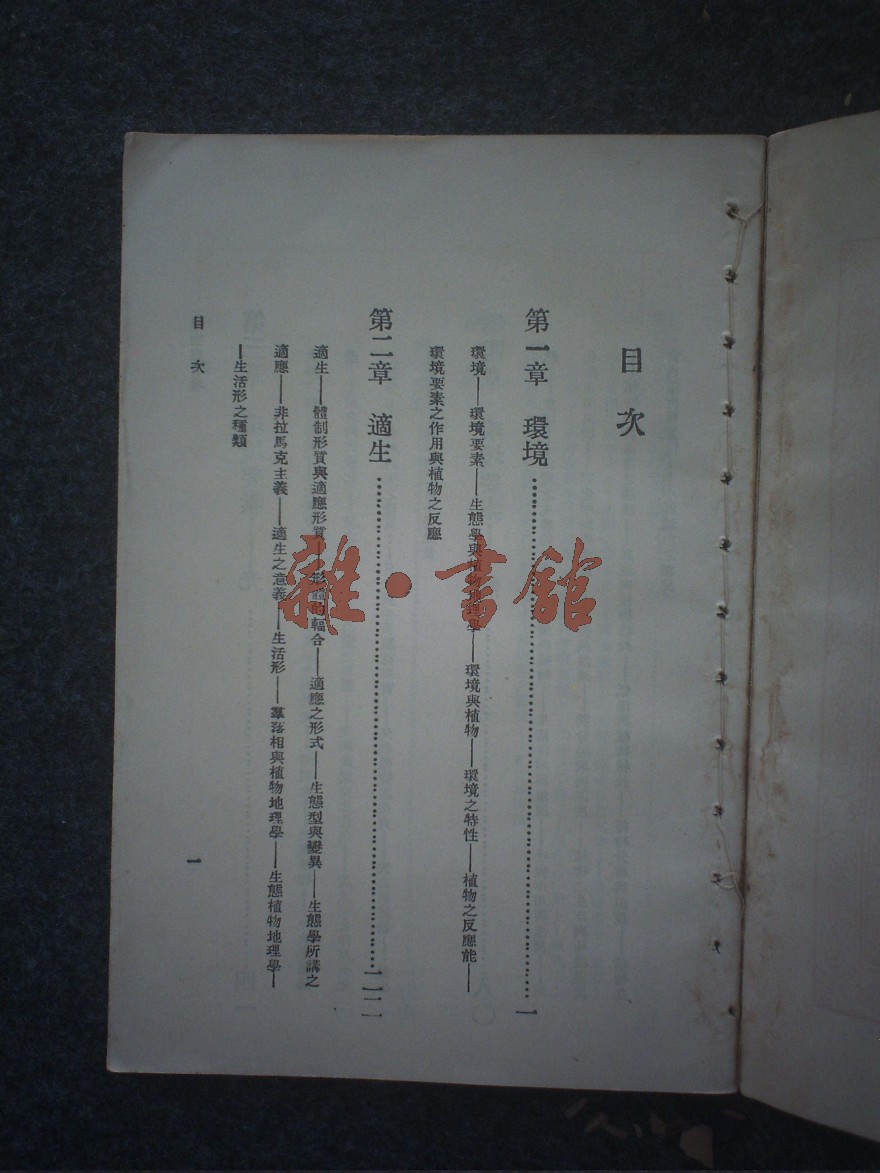 目次
第一章 環境……一
環境——環境要素——生態學與植物地理學——環境與植物——環境之特性——植物之反應能——
環境要素之作用與植物之反應
第二章 適生……二二
適生——體制形質與適應形質——形體的輻合——適應之形式——生態型與變異——生態學所講之
適應——非拉馬克主義——適生之意義——生活形——羣落相與植物地理學——生態植物地理學——
——生活形之種類
目次
一
雜·書館